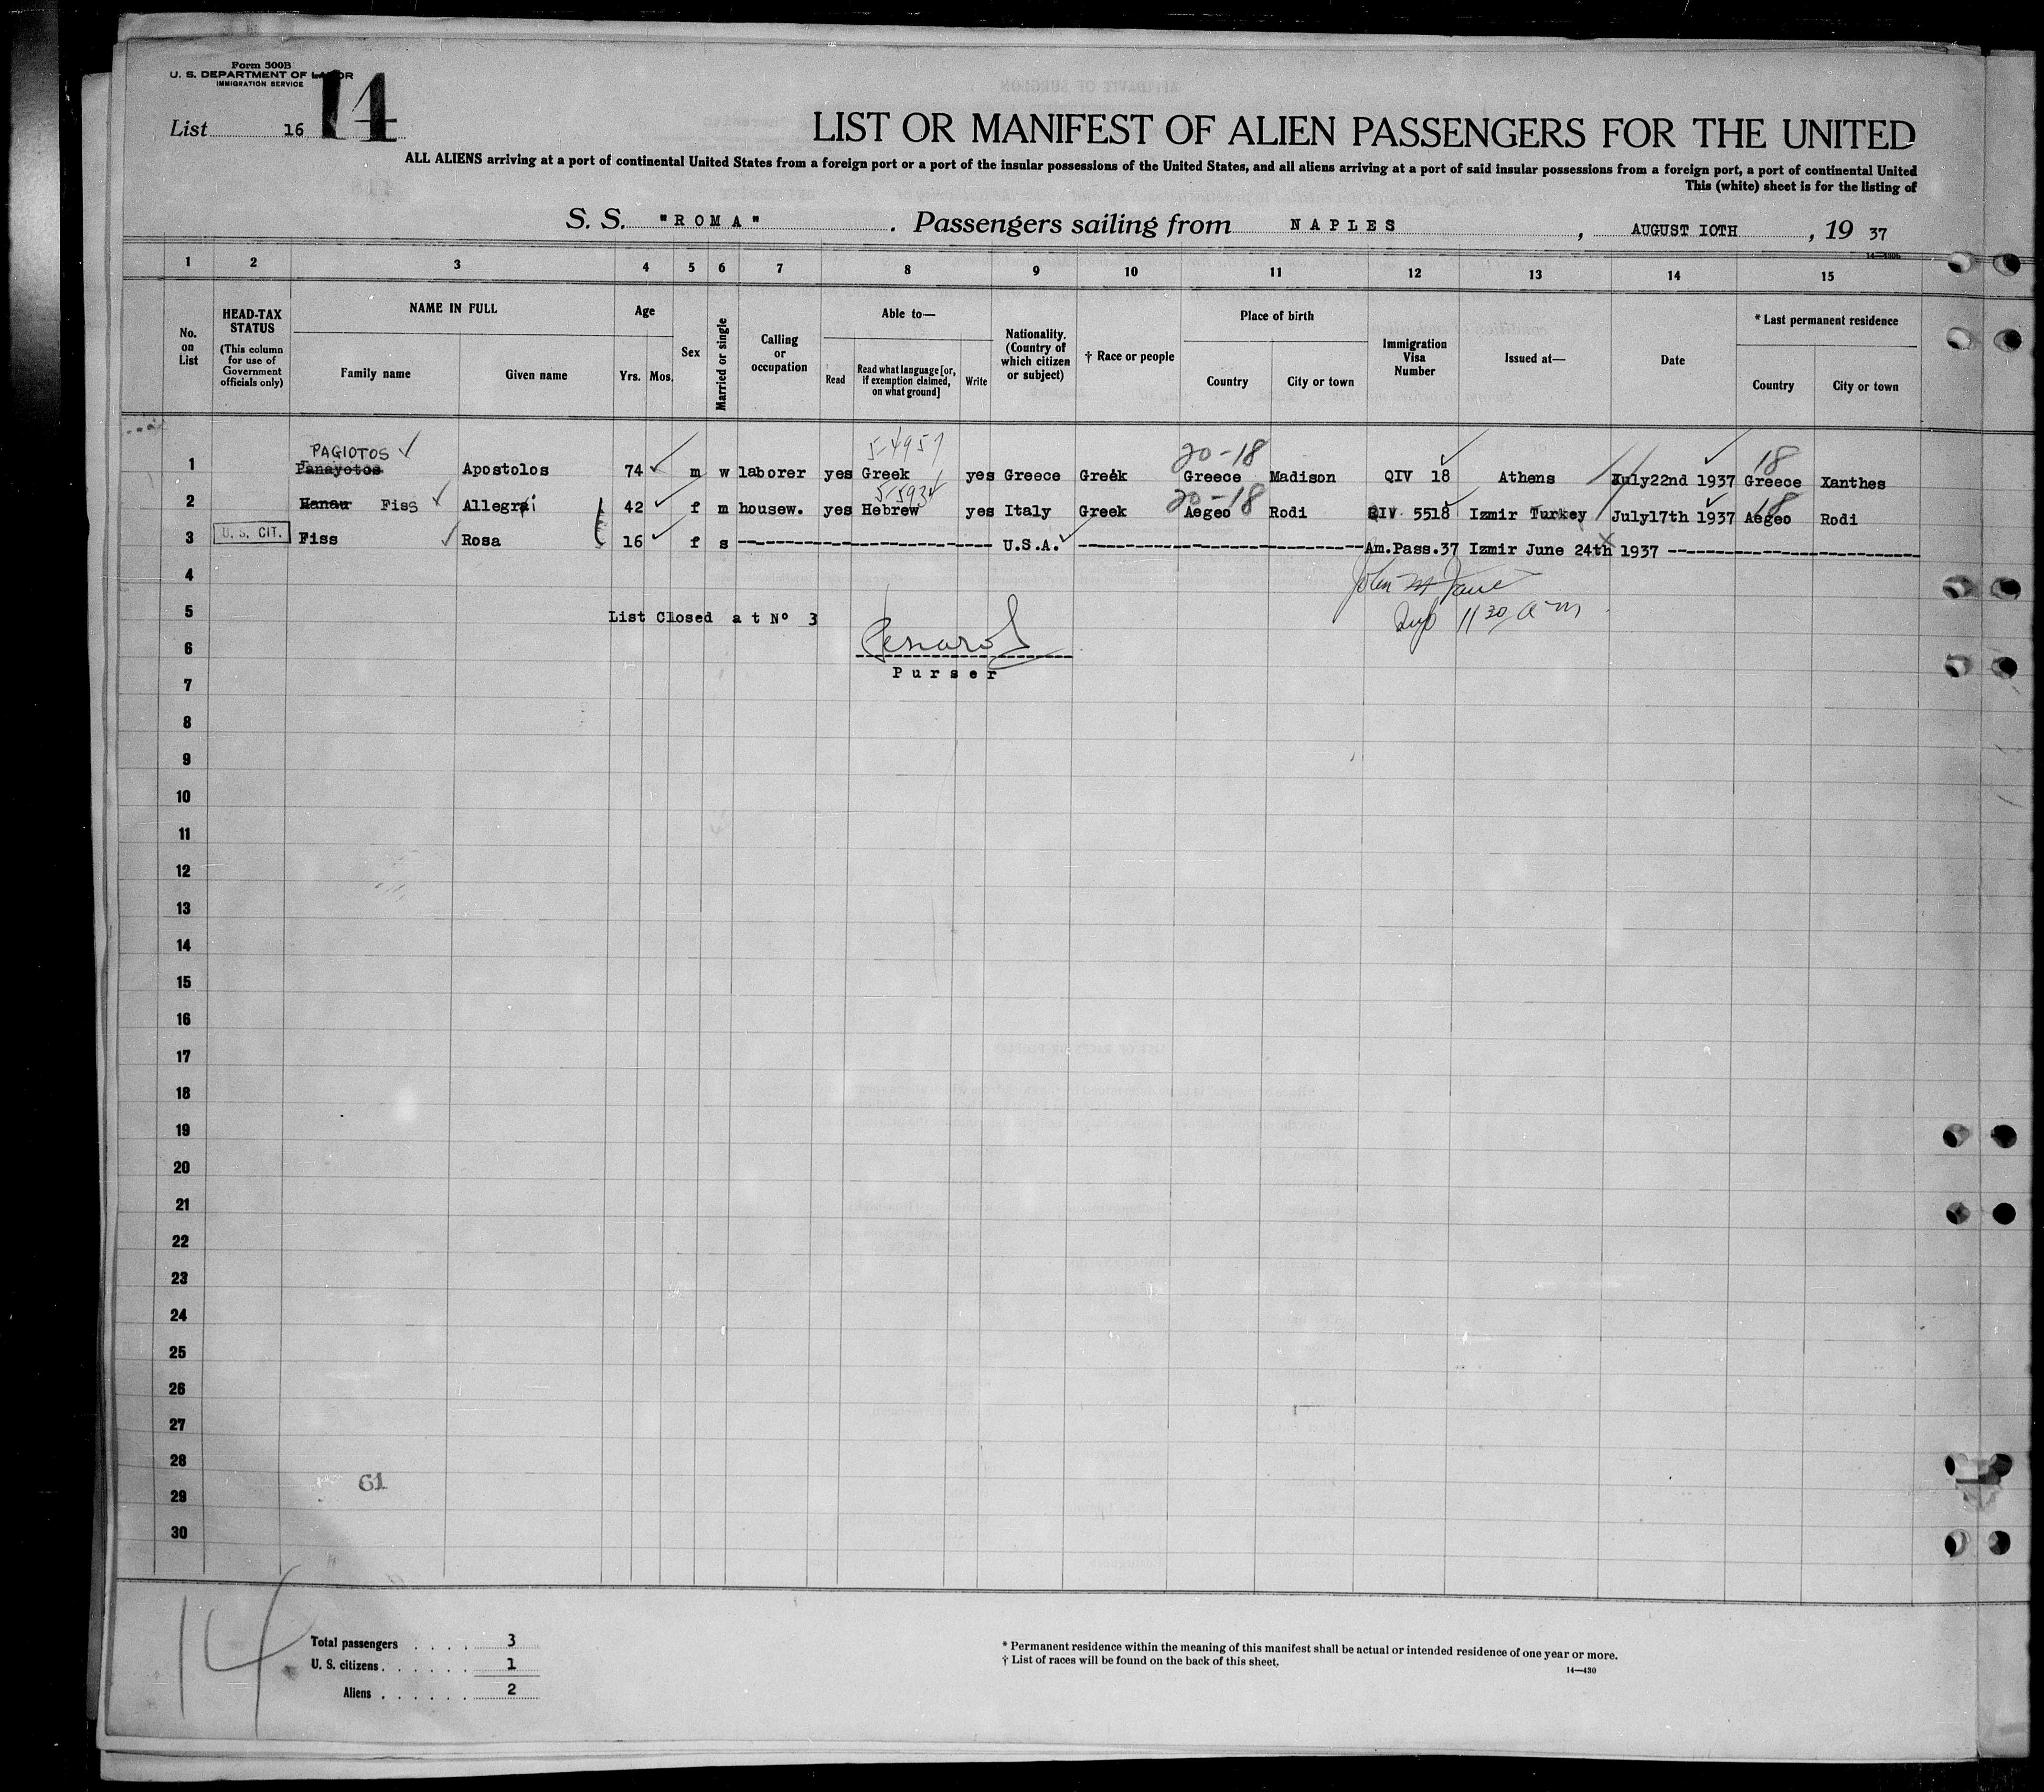 Form 500B
U. S. DEPARTMENT OF LABOR
IMMIGRATION SERVICE
List 16 14
LIST OR MANIFEST OF ALIEN PASSENGERS FOR THE UNITED
ALL ALIENS arriving at a port of continental United States from a foreign port or a port of the insular possessions of the United States, and all aliens arriving at a port of said insular possessions from a foreign port, a port of continental United
This (white) sheet is for the listing of
S. S. "ROMA" . Passengers sailing from NAPLES , AUGUST IOTH , 19 37
14—430b
1 2 3 4 5 6 7 8 9 10 11 12 13 14 15
No. on List
HEAD-TAX STATUS (This column for use of Government officials only)
NAME IN FULL
Family name Given name
Age
Yrs. Mos.
Sex
Married or single
Calling or occupation
Able to—
Read Read what language [or, if exemption claimed, on what ground] Write
Nationality. (Country of which citizen or subject)
† Race or people
Place of birth
Country City or town
Immigration Visa Number
Issued at—
Date
* Last permanent residence
Country City or town
PAGIOTOS ✓ 5-4957 20-18 18
1 Panayotos Apostolos 74 ✓ m w laborer yes Greek yes Greece Greek Greece Madison QIV 18 Athens July22nd 1937 Greece Xanthes
5-5934 20-18 18
2 Hanau Fiss ✓ Allegrai 42 ✓ f m housew. yes Hebrew yes Italy Greek Aegeo Rodi QIV 5518 Izmir Turkey July17th 1937 Aegeo Rodi
3 U. S. CIT. Fiss ✓ Rosa 16 ✓ f s U.S.A. ✓ Am.Pass.37 Izmir June 24th 1937
4
John M
5 List Closed at Nº 3
11 30 a m
6
Purser
7
8
9
10
11
12
13
14
15
16
17
18
19
20
21
22
23
24
25
26
27
28
61
29
30
14
Total passengers . . . . 3
U. S. citizens . . . . . . 1
Aliens . . . . . . 2
* Permanent residence within the meaning of this manifest shall be actual or intended residence of one year or more.
† List of races will be found on the back of this sheet.
14—430